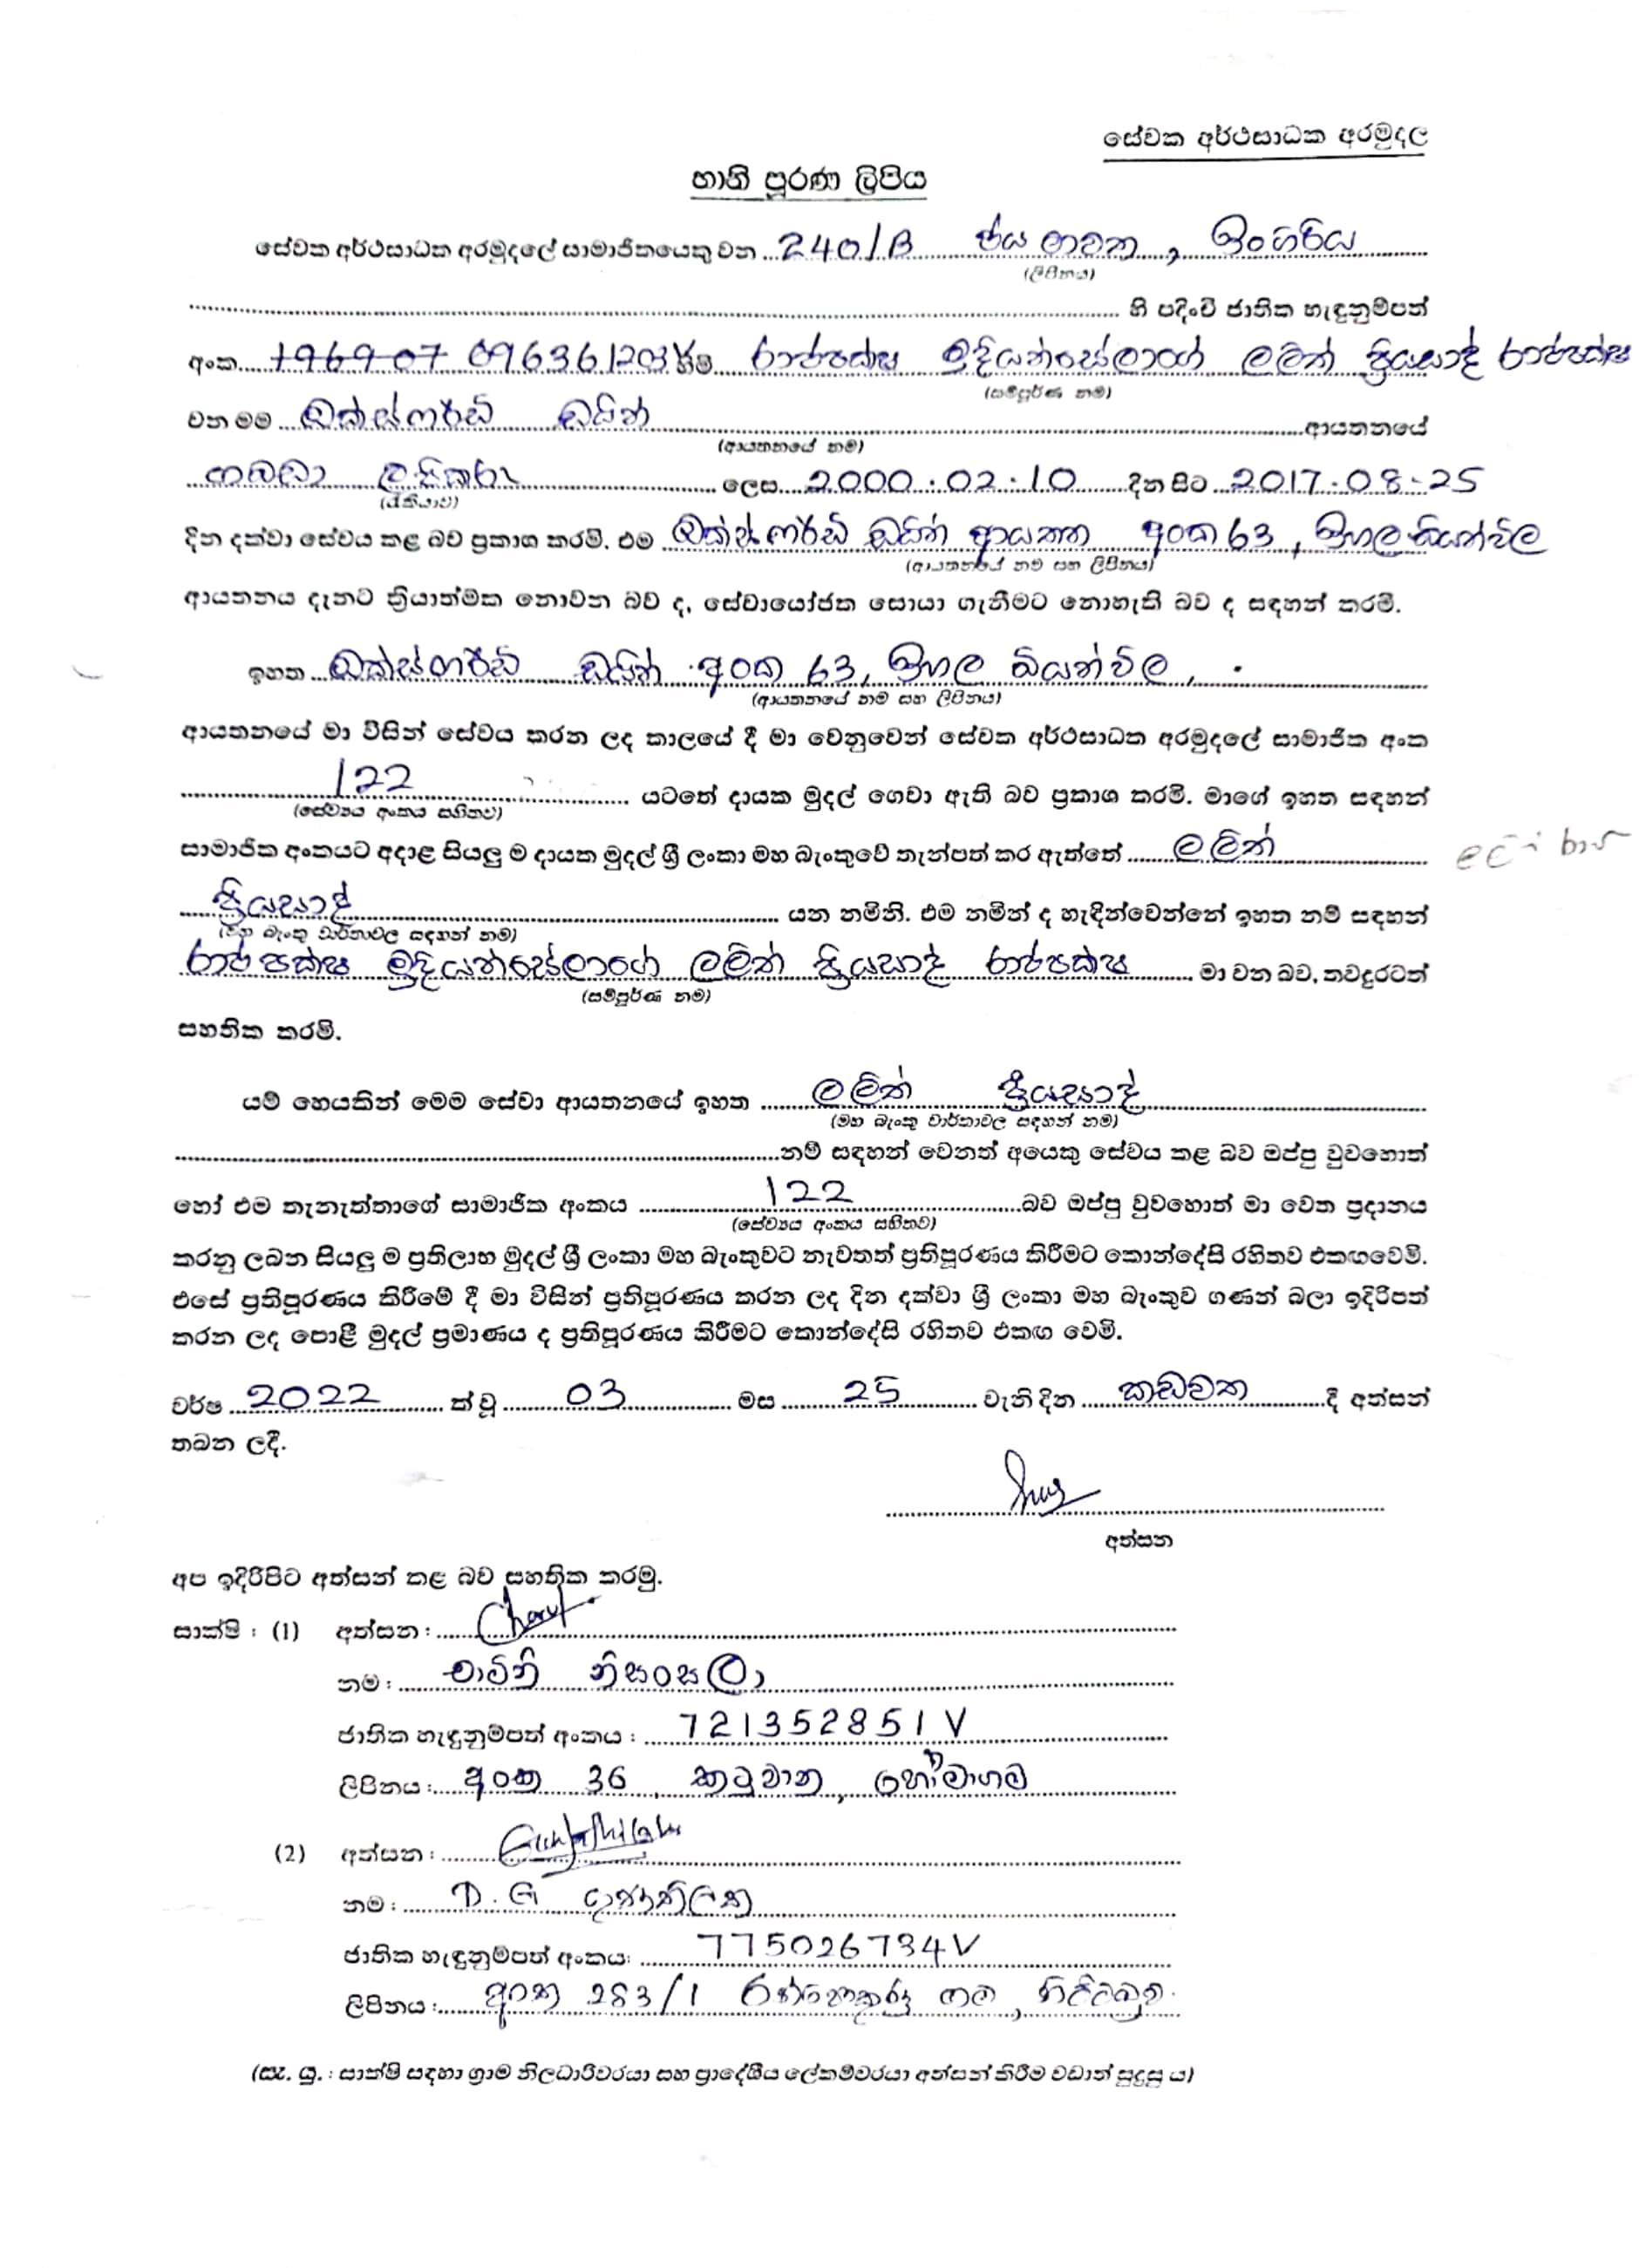 සේවක අර්ථසාධක අරමුදල
හානි පූරණ ලිපිය
සේවක අර්ථසාධක අරමුදලේ සාමාජිකයෙකු වන 240/B ජය මාවත, ඉංගිරිය
(ලිපිනය)
හි පදිංචි ජාතික හැඳුනුම්පත්
අංක 196907 696361203V හිමි රාජපක්ෂ මුදියන්සේලාගේ ලලිත් ප්‍රියසාද් රාජපක්ෂ
(සම්පූර්ණ නම)
වන මම ඔක්ස්ෆර්ඩ් ඩයින් ආයතනයේ
(ආයතනයේ නම)
ගබඩා ලිපිකරු ලෙස 2000.02.10 දින සිට 2017.08.25
(රැකියාව)
දින දක්වා සේවය කළ බව ප්‍රකාශ කරමි. එම ඔක්ස්ෆර්ඩ් ඩයින් අංක 63, ඉහල බියන්විල
(ආයතනයේ නම සහ ලිපිනය)
ආයතනය දැනට ක්‍රියාත්මක නොවන බව ද, සේවායෝජක සොයා ගැනීමට නොහැති බව ද සඳහන් කරමි.
ඉහත ඔක්ස්ෆර්ඩ් ඩයින් අංක 63, ඉහල බියන්විල,
(ආයතනයේ නම සහ ලිපිනය)
ආයතනයේ මා විසින් සේවය කරන ලද කාලයේ දී මා වෙනුවෙන් සේවක අර්ථසාධක අරමුදලේ සාමාජික අංක
122 යටතේ දායක මුදල් ගෙවා ඇති බව ප්‍රකාශ කරමි. මාගේ ඉහත සඳහන්
(සේව්‍යය අංකය සහිතව)
සාමාජික අංකයට අදාළ සියලු ම දායක මුදල් ශ්‍රී ලංකා මහ බැංකුවේ තැන්පත් කර ඇත්තේ ලලිත්
ප්‍රියසාද් යන නමිනි. එම නමින් ද හැඳින්වෙන්නේ ඉහත නම් සඳහන්
(මහ බැංකු වාර්තාවල සඳහන් නම)
රාජපක්ෂ මුදියන්සේලාගේ ලලිත් ප්‍රියසාද් රාජපක්ෂ මා වන බව, තවදුරටත්
(සම්පූර්ණ නම)
සහතික කරමි.
යම් හෙයකින් මෙම සේවා ආයතනයේ ඉහත ලලිත් ප්‍රියසාද්
(මහ බැංකු වාර්තාවල සඳහන් නම)
නම් සඳහන් වෙනත් අයෙකු සේවය කළ බව ඔප්පු වුවහොත්
හෝ එම තැනැත්තාගේ සාමාජික අංකය 122 බව ඔප්පු වුවහොත් මා වෙත ප්‍රදානය
(සේව්‍යය අංකය සහිතව)
කරනු ලබන සියලු ම ප්‍රතිලාභ මුදල් ශ්‍රී ලංකා මහ බැංකුවට නැවතත් ප්‍රතිපූරණය කිරීමට කොන්දේසි රහිතව එකඟවෙමි.
එසේ ප්‍රතිපූරණය කිරීමේ දී මා විසින් ප්‍රතිපූරණය කරන ලද දින දක්වා ශ්‍රී ලංකා මහ බැංකුව ගණන් බලා ඉදිරිපත්
කරන ලද පොළී මුදල් ප්‍රමාණය ද ප්‍රතිපූරණය කිරීමට කොන්දේසි රහිතව එකඟ වෙමි.
වර්ෂ 2022 ක් වූ 03 මස 25 වැනි දින කඩවත දී අත්සන්
තබන ලදී.
අත්සන
අප ඉදිරිපිට අත්සන් කළ බව සහතික කරමු.
සාක්ෂි : (1) අත්සන :
නම : චාමිනි නිසංසලා
ජාතික හැඳුනුම්පත් අංකය : 721352851V
ලිපිනය : අංක 36, කටුවාන, හෝමාගම
(2) අත්සන :
නම : D. G ගුණතිලක
ජාතික හැඳුනුම්පත් අංකය: 775026734V
ලිපිනය : අංක 283/1
(සැ. යු. : සාක්ෂි සඳහා ග්‍රාම නිලධාරිවරයා සහ ප්‍රාදේශීය ලේකම්වරයා අත්සන් කිරීම වඩාත් සුදුසු ය)